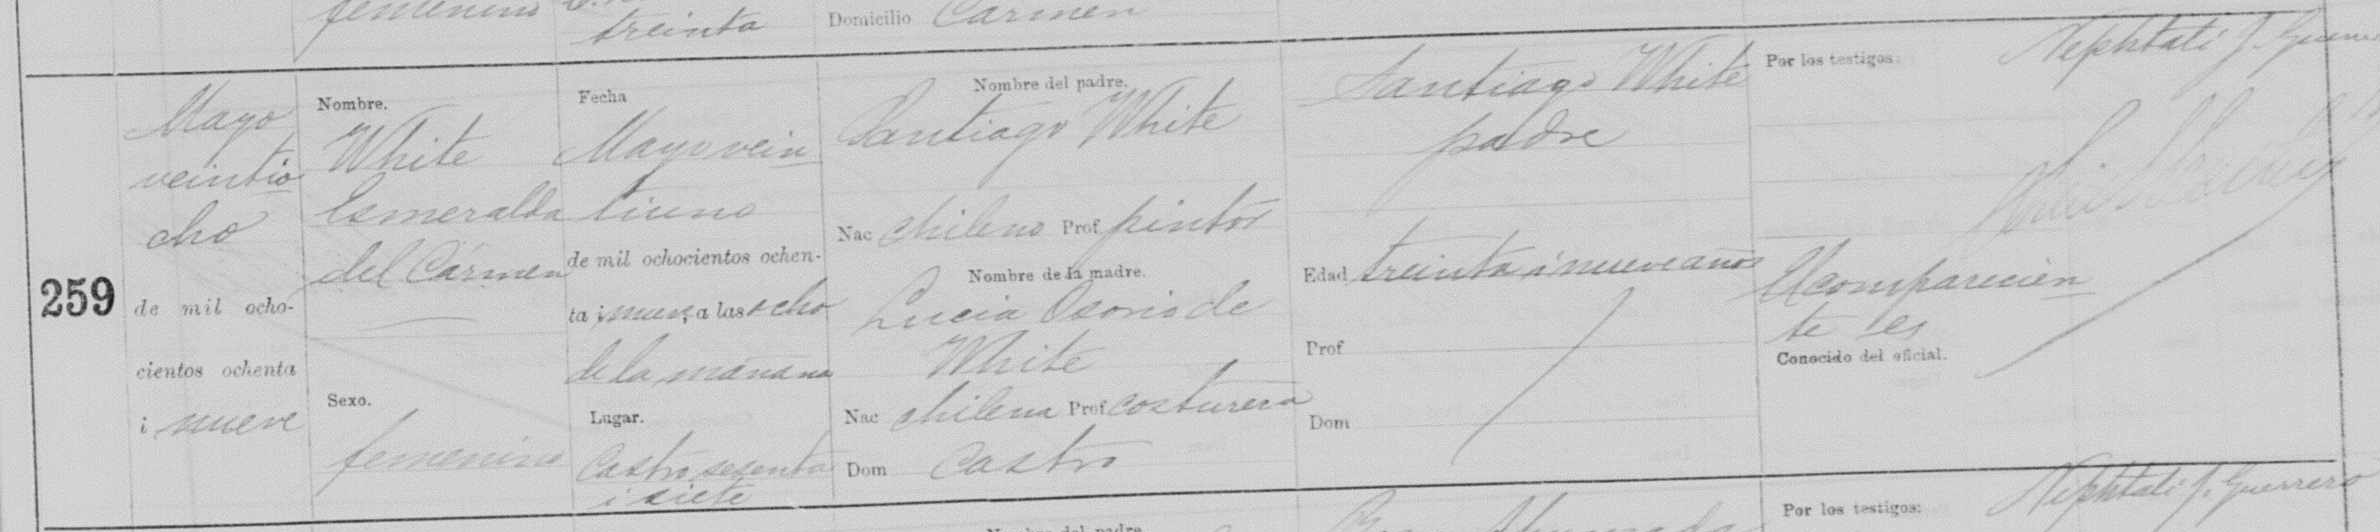 femenino
treinta
Domicilio Carmen
259
Mayo
veintio
cho
de mil ocho-
cientos ochenta
i nueve
Nombre.
White
Esmeralda
del Cármen
Sexo.
femenino
Fecha
Mayo vein
tiuno
de mil ochocientos ochen-
ta i nueve, a las ocho
de la mañana
Lugar.
Castro sesenta
i siete
Nombre del padre.
Santiago White
Nac chileno Prof. pintor
Nombre de la madre.
Lucia Osorio de
White
Nac chilena Prof costurera
Dom Castro
Santiago White
padre
Edad treinta i nueve años
Prof
Dom
Por los testigos:
Nephtali J. Guerrero
El comparecien
te es
Conocido del oficial.
Nombre del padre
Ahumada
Por los testigos:
Nephtali J. Guerrero